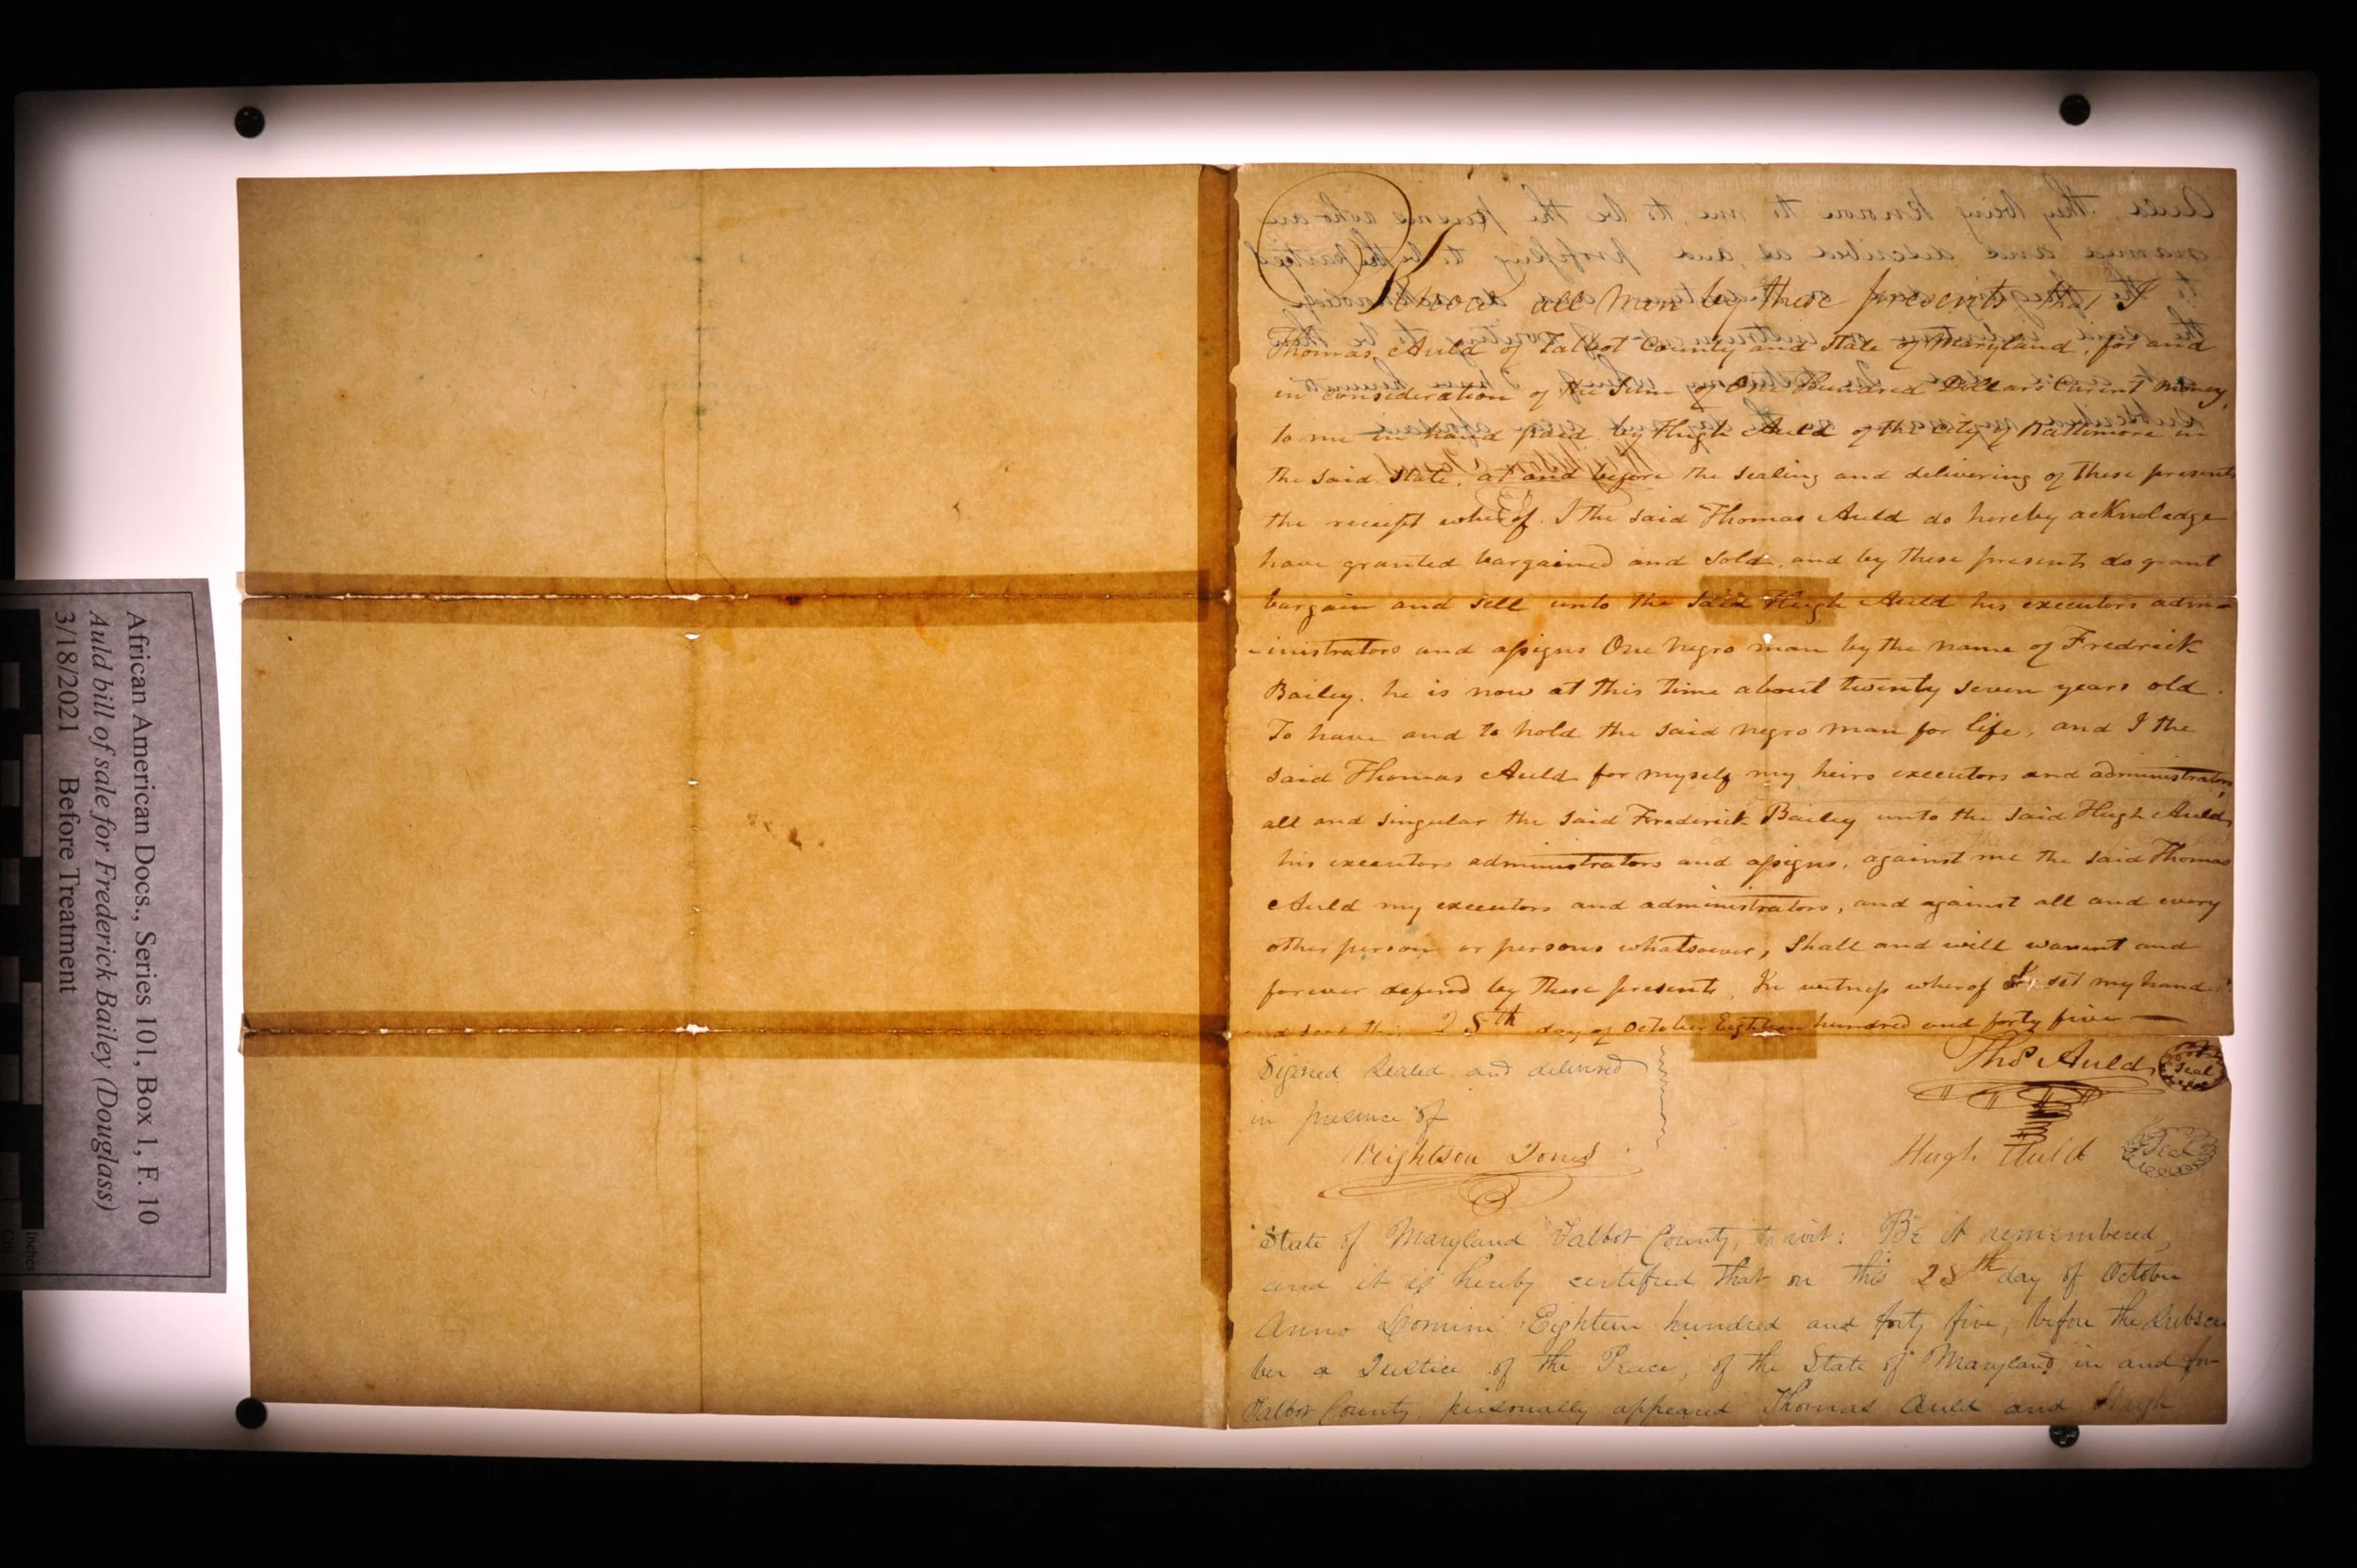 African American Docs., Series 101, Box 1, F. 10
Auld bill of sale for Frederick Bailey (Douglass)
3/18/2021 Before Treatment
Inches
Cm
Know all Men by these presents that I
Thomas Auld of Talbot County and State of Maryland, for and
in consideration of the Sum of One Hundred Dollars Current money,
to me in hand paid by Hugh Auld of the city of Baltimore in
the said State, at and before the sealing and delivering of these presents
the receipt wherof. I the said Thomas Auld do hereby acKnoledge
have granted bargained and Sold, and by these presents do grant
bargain and sell unto the said Hugh Auld his executors adm-
-inistrators and assigns One negro man by the name of Fredrick
Bailey. he is now at this time about twenty seven years old.
To have and to hold the said negro man for life, and I the
said Thomas Auld for myself my heirs executors and administrators,
all and singular the said Frederick Bailey unto the said Hugh Auld,
his executors administrators and assigns, against me the said Thomas
Auld my executors and administrators, and against all and every
other person or persons whatsoever, Shall and will warrent and
forever defend by these presents, In witness wherof set my hand
and seal this 25th day of October Eighteen hundred and forty five —
Signed Sealed and delivered
in presence of
Wrightson Jones
Thos Auld Seal
Hugh Auld Seal
State of Maryland Talbot County, to wit: Be it remembered,
and it is hereby certified that on this 25th day of October
Anno Domini Eighteen hundred and forty five, before the Subscri
ber a Justice of the Peace, of the State of Maryland in and for
Talbot County personally appeared Thomas Auld and Hugh
Auld, they being known to me to be the persons who are
named and described as and professing to be the parties
to the
the said instrument of writing to be their
In testimony whereof I have hereunto
subscribed my name on the day and year aforesaid
Wrightson Jones